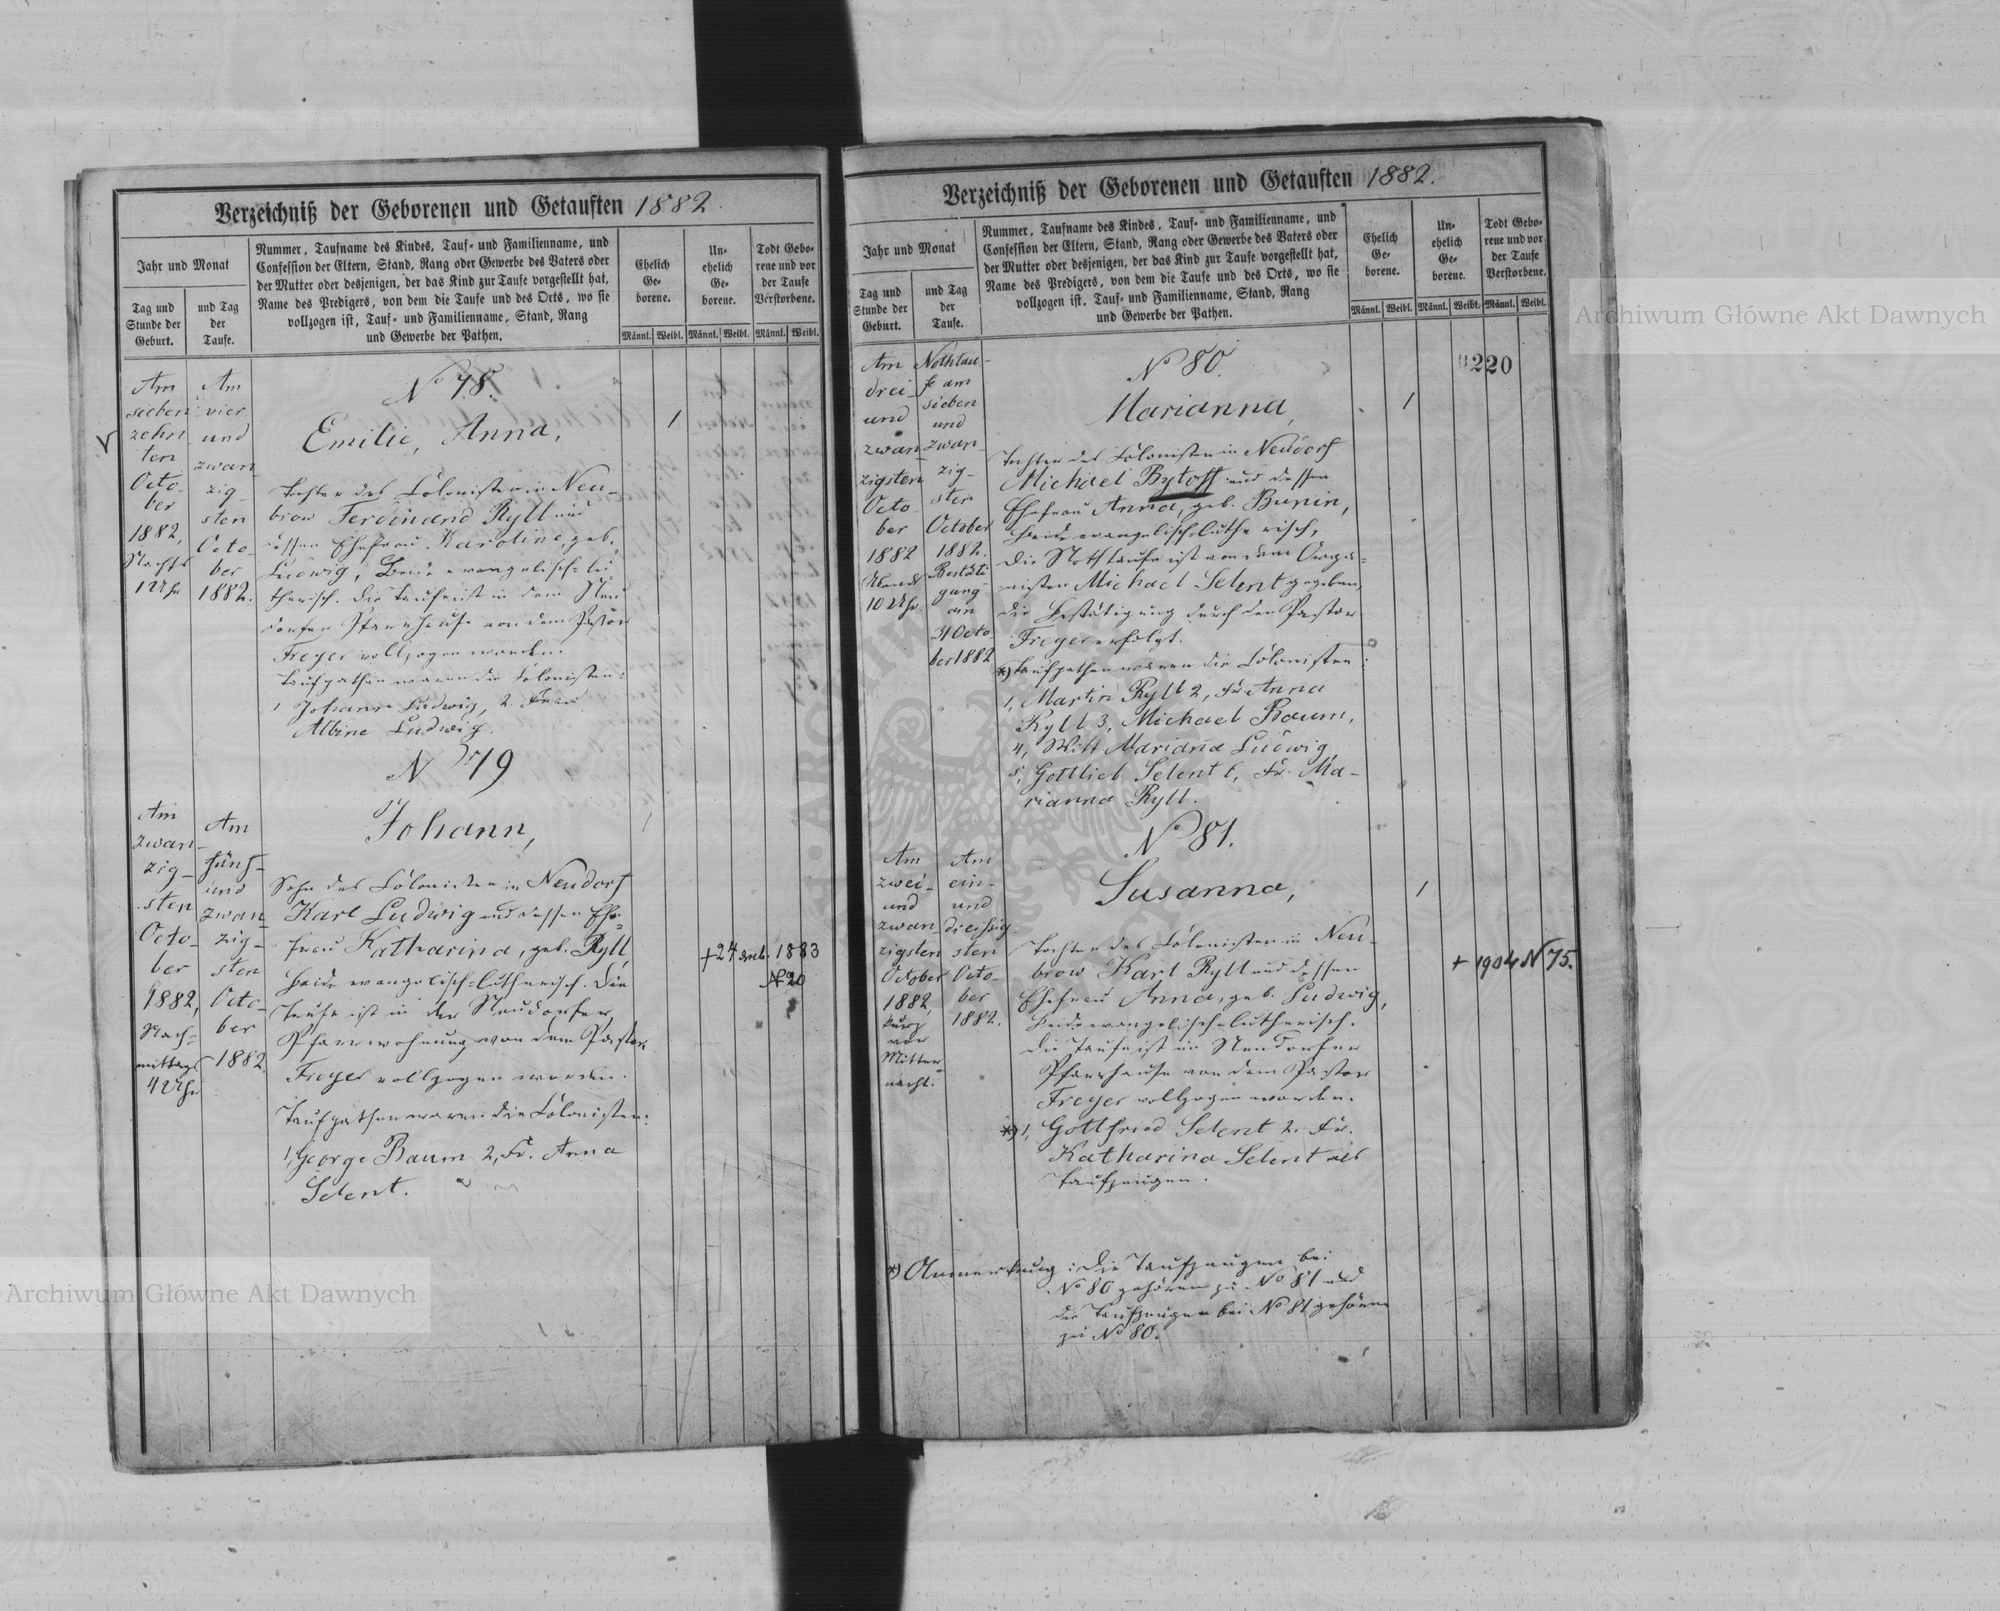 Verzeichniß der Geborenen und Getauften 1882.
Jahr und Monat
Tag und
Stunde der
Geburt.
und Tag
der
Taufe.
Nummer, Taufname des Kindes, Tauf- und Familienname, und
Confession der Eltern, Stand, Rang oder Gewerbe des Vaters oder
der Mutter oder desjenigen, der das Kind zur Taufe vorgestellt hat,
Name des Predigers, von dem die Taufe und des Orts, wo sie
vollzogen ist, Tauf- und Familienname, Stand, Rang
und Gewerbe der Pathen.
Ehelich
Ge-
borene.
Un-
ehelich
Ge-
borene.
Todt Gebo-
rene und vor
der Taufe
Verstorbene.
Männl. Weibl. Männl. Weibl. Männl. Weibl.
Am
sieben
zehn
ten
Octo-
ber
1882,
Nachts
1 Uhr
Am
vier
und
zwan
zig-
sten
Octo-
ber
1882.
No 78.
Emilie, Anna,
1
Tochter des Colonisten in Neu-
brow Ferdinand Ryll und
dessen Ehefrau Karoline, geb.
Ludwig, Beide evangelisch-lu
therisch. Die Taufe ist in dem Neu
dorfer Pfarrhause von dem Pastor
Freyer vollzogen worden.
Taufpathen waren die Colonisten:
1 Johann Ludwig, 2. Frau
Albine Ludwig.
No 79
Am
zwan-
zig-
sten
Octo-
ber
1882,
Nach-
mittags
4 Uhr
Am
fünf-
und
zwan
zig-
sten
Octo-
ber
1882.
Johann,
1
Sohn des Colonisten in Neudorf
Karl Ludwig und dessen Ehe-
frau Katharina, geb. Ryll,
Beide evangelisch-lutherisch. Die
Taufe ist in der Neudorfer
Pfarrwohnung von dem Pastor
Freyer vollzogen worden.
Taufpathen waren die Colonisten:
1, George Baum 2, Fr. Anna
Selent.
+ 24 1883
No 20
Verzeichniß der Geborenen und Getauften 1882.
Jahr und Monat
Tag und
Stunde der
Geburt.
und Tag
der
Taufe.
Nummer, Taufname des Kindes, Tauf- und Familienname, und
Confession der Eltern, Stand, Rang oder Gewerbe des Vaters oder
der Mutter oder desjenigen, der das Kind zur Taufe vorgestellt hat,
Name des Predigers, von dem die Taufe und des Orts, wo sie
vollzogen ist, Tauf- und Familienname, Stand, Rang
und Gewerbe der Pathen.
Ehelich
Ge-
borene.
Un-
ehelich
Ge-
borene.
Todt Gebo-
rene und vor
der Taufe
Verstorbene.
Männl. Weibl. Männl. Weibl. Männl. Weibl.
220
Am
drei
und
zwan
zigsten
Octo-
ber
1882
Abends
10 Uhr
Nothtau-
fe am
sieben
und
zwan-
zig-
sten
October
1882.
Bestäti
gung
am
31 Octo-
ber 1882
No 80.
Marianna,
1
Tochter des Colonisten in Neudorf
Michael Bytoff und dessen
Ehefrau Anna, geb. Bunin,
Beide evangelisch-lutherisch,
Die Nothtaufe ist von dem Orga-
nisten Michael Selent gegeben,
die Bestätigung durch den Pastor
Freyer erfolgt.
*) Taufpathen waren die Colonisten:
1, Martin Ryll 2, Fr. Anna
Ryll 3, Michael Baum,
4, Witt Mariana Ludwig
5, Gottlieb Selent 6, Fr. Ma-
rianna Ryll.
No 81.
Am
zwei-
und
zwan
zigsten
October
1882,
kurz
vor
Mitter-
nacht.
Am
ein-
und
dreißig-
sten
Octo-
ber
1882.
Susanna,
1
Tochter des Colonisten in Neu-
brow Karl Ryll und dessen
Ehefrau Anna, geb. Ludwig,
Beide evangelisch-lutherisch.
Die Taufe ist im Neudorfer
Pfarrhause von dem Pastor
Freyer vollzogen worden.
*) 1, Gottfried Selent 2. Fr.
Katharina Selent als
Taufzeugen.
+ 1904 N 75.
*) Anmerkung: Die Taufzeugen bei
No 80 gehören zu No 81 und
die Taufzeugen bei No 81 gehören
zu No 80.
Archiwum Główne Akt Dawnych
Archiwum Główne Akt Dawnych